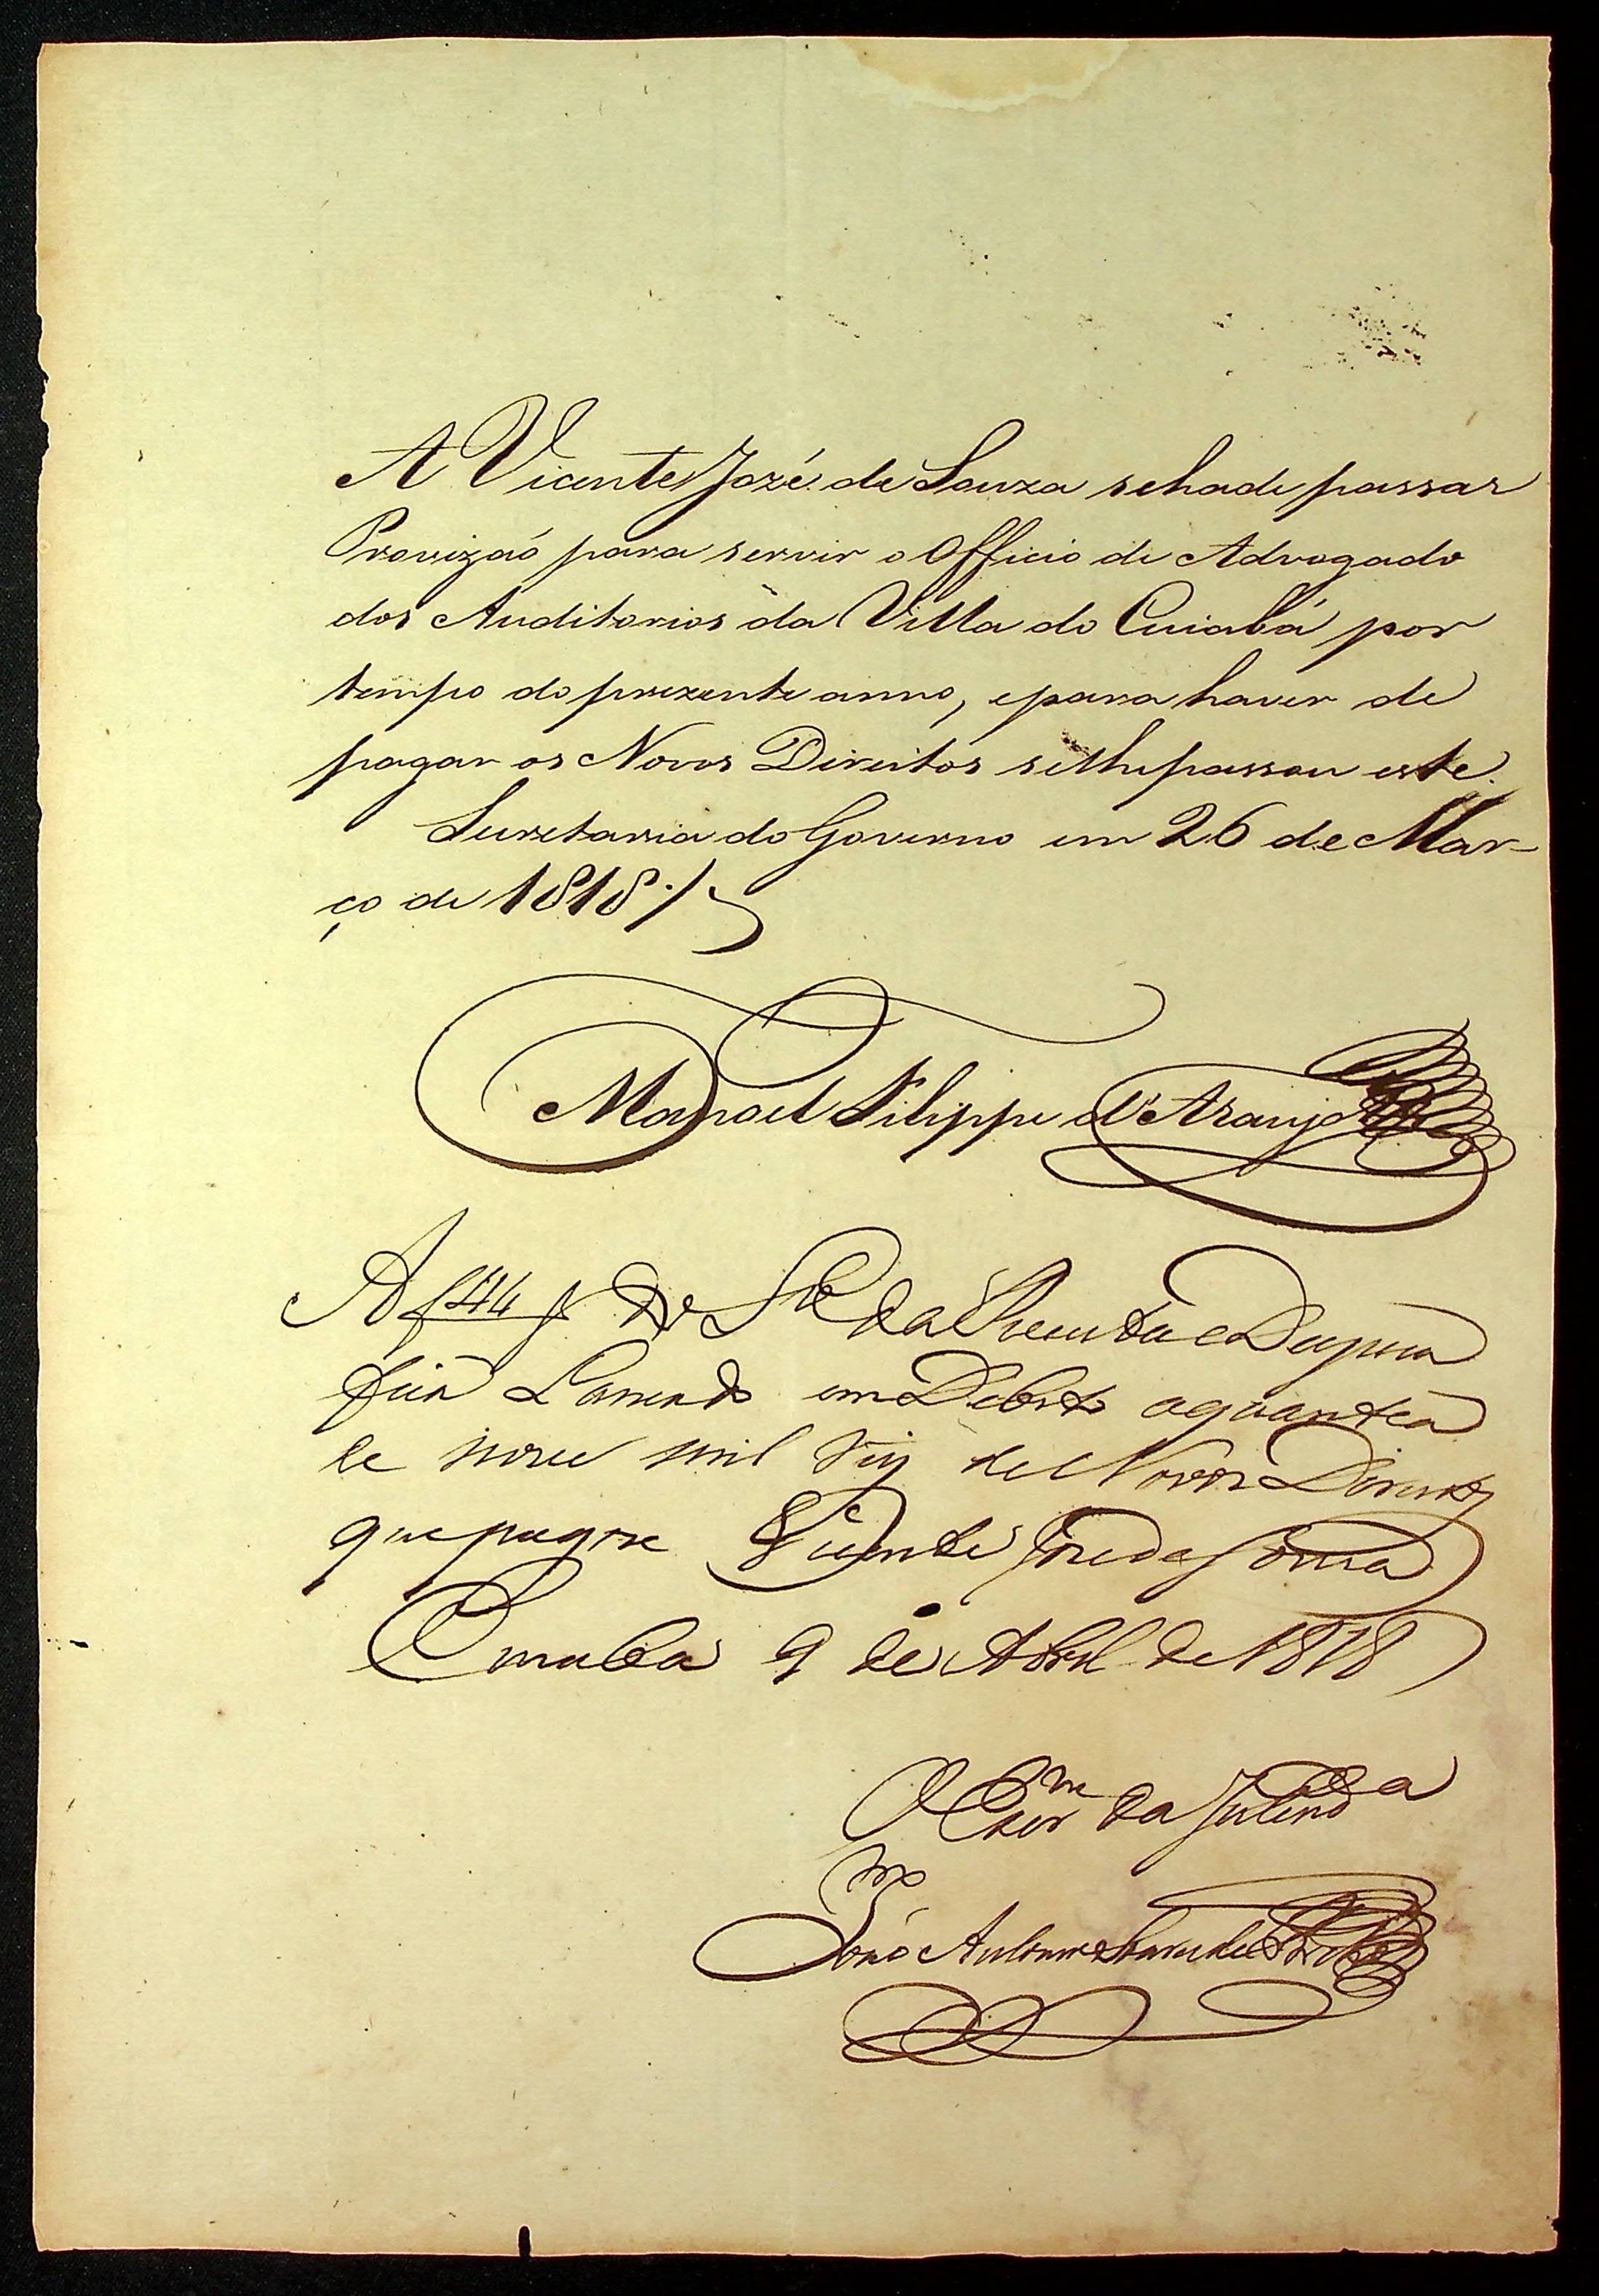 A Vicente Jozé de Souza sehade passar
Provizaõ para servir o Officio de Advogado
dos Auditorios da Villa do Cuiabá por
tempo do prezente anno, epara haver de
pagar os Novos Direitos selhepassou este.
Secretaria do Governo em 26 de Mar-
ço de 1818
Manoel Filippe d'Araujo
A f 44 do L.º da Receita e Despeza
fica Lansado em Debito aquantia
de nove mil reis de Novos Direitos
que pagou Vicente Jose de Souza
Cuiaba 9 de Abril de 1818
O Escr.m da Fazend.a
João Antonio